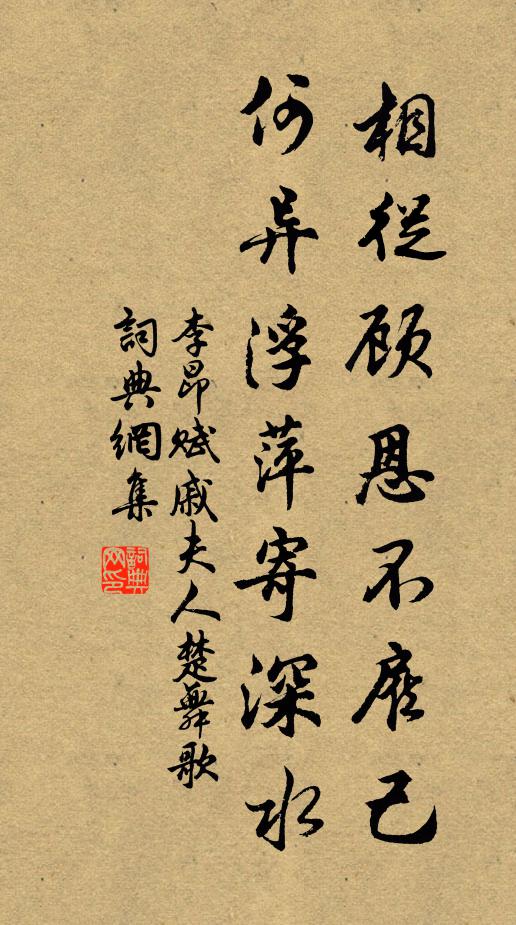 相從顾恩不雇己
何异浮萍寄深水
李昂賦戚夫人楚舞歌
詞典網集
詞典网印